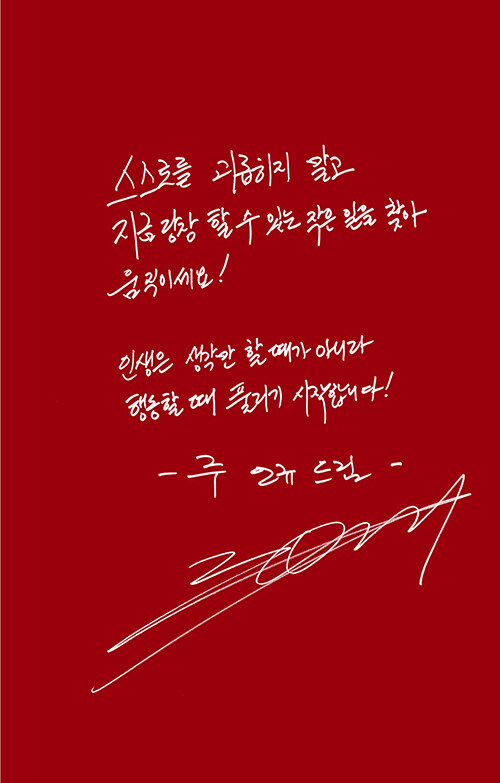 스스로를 괴롭히지 말고
지금 당장 할 수 있는 작은 일을 찾아
움직이세요!
인생은 생각만 할 때가 아니라
행동할 때 풀리기 시작합니다!
드림 -